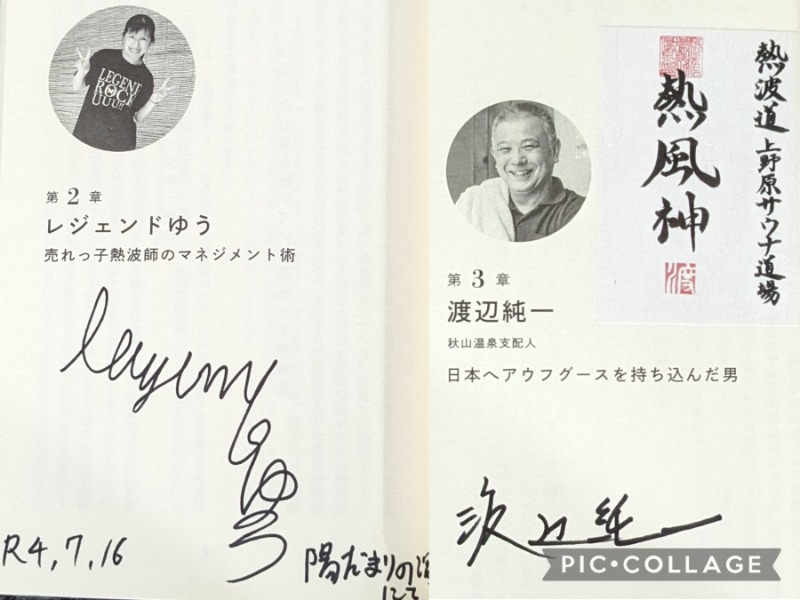 LEGEND
ROCK
UUU!!
第2章
レジェンドゆう
売れっ子熱波師のマネジメント術
legend
ゆう
R4,7,16
陽だまりの
にて
熱波道 上野原サウナ道場
熱風神
第3章
渡辺純一
秋山温泉支配人
日本へアウフグースを持ち込んだ男
渡辺純一
PIC•COLLAGE